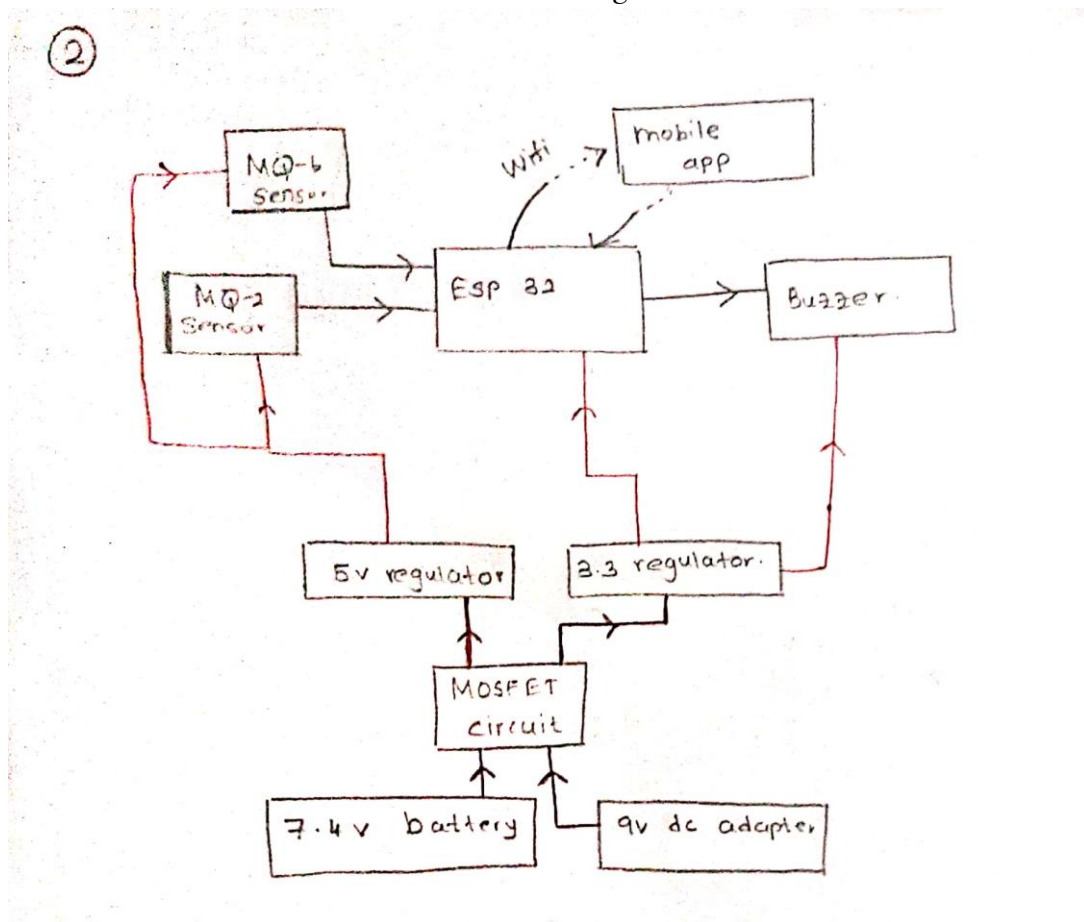 2
MQ-6
Sensor
Wifi
mobile
app
ESP 32
MQ-2
Sensor
Buzzer.
5v regulator
3.3 regulator.
MOSFET
circuit
7.4v battery
9v dc adapter